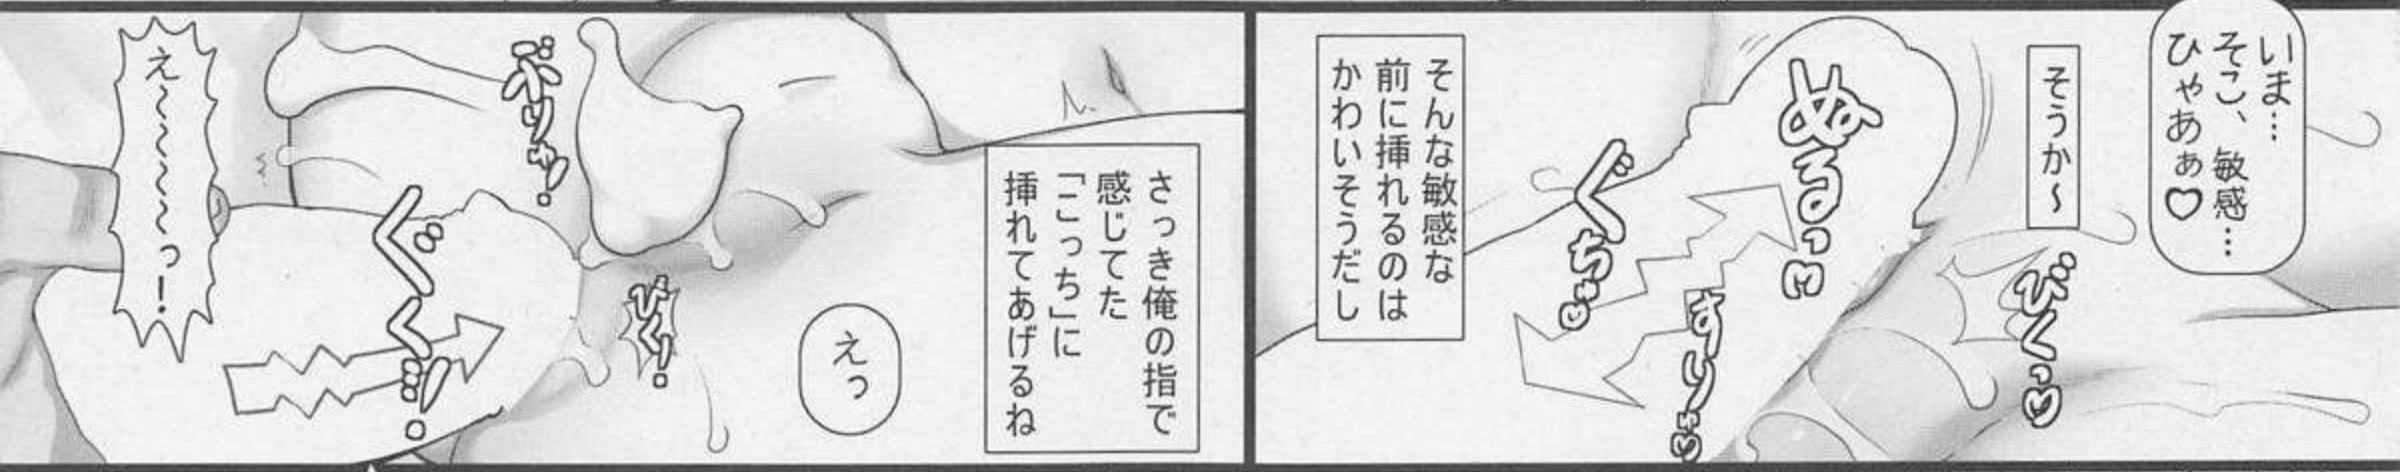 いま…
そこ、敏感…
ひゃあぁ♡
そうか〜
びくっ
ぬるっ
すりゅ
ぐちゅ
そんな敏感な
前に挿れるのは
かわいそうだし
さっき俺の指で
感じてた
「こっち」に
挿れてあげるね
えっ
びくっ!
ぐぐ…!
え〜〜〜〜っ!